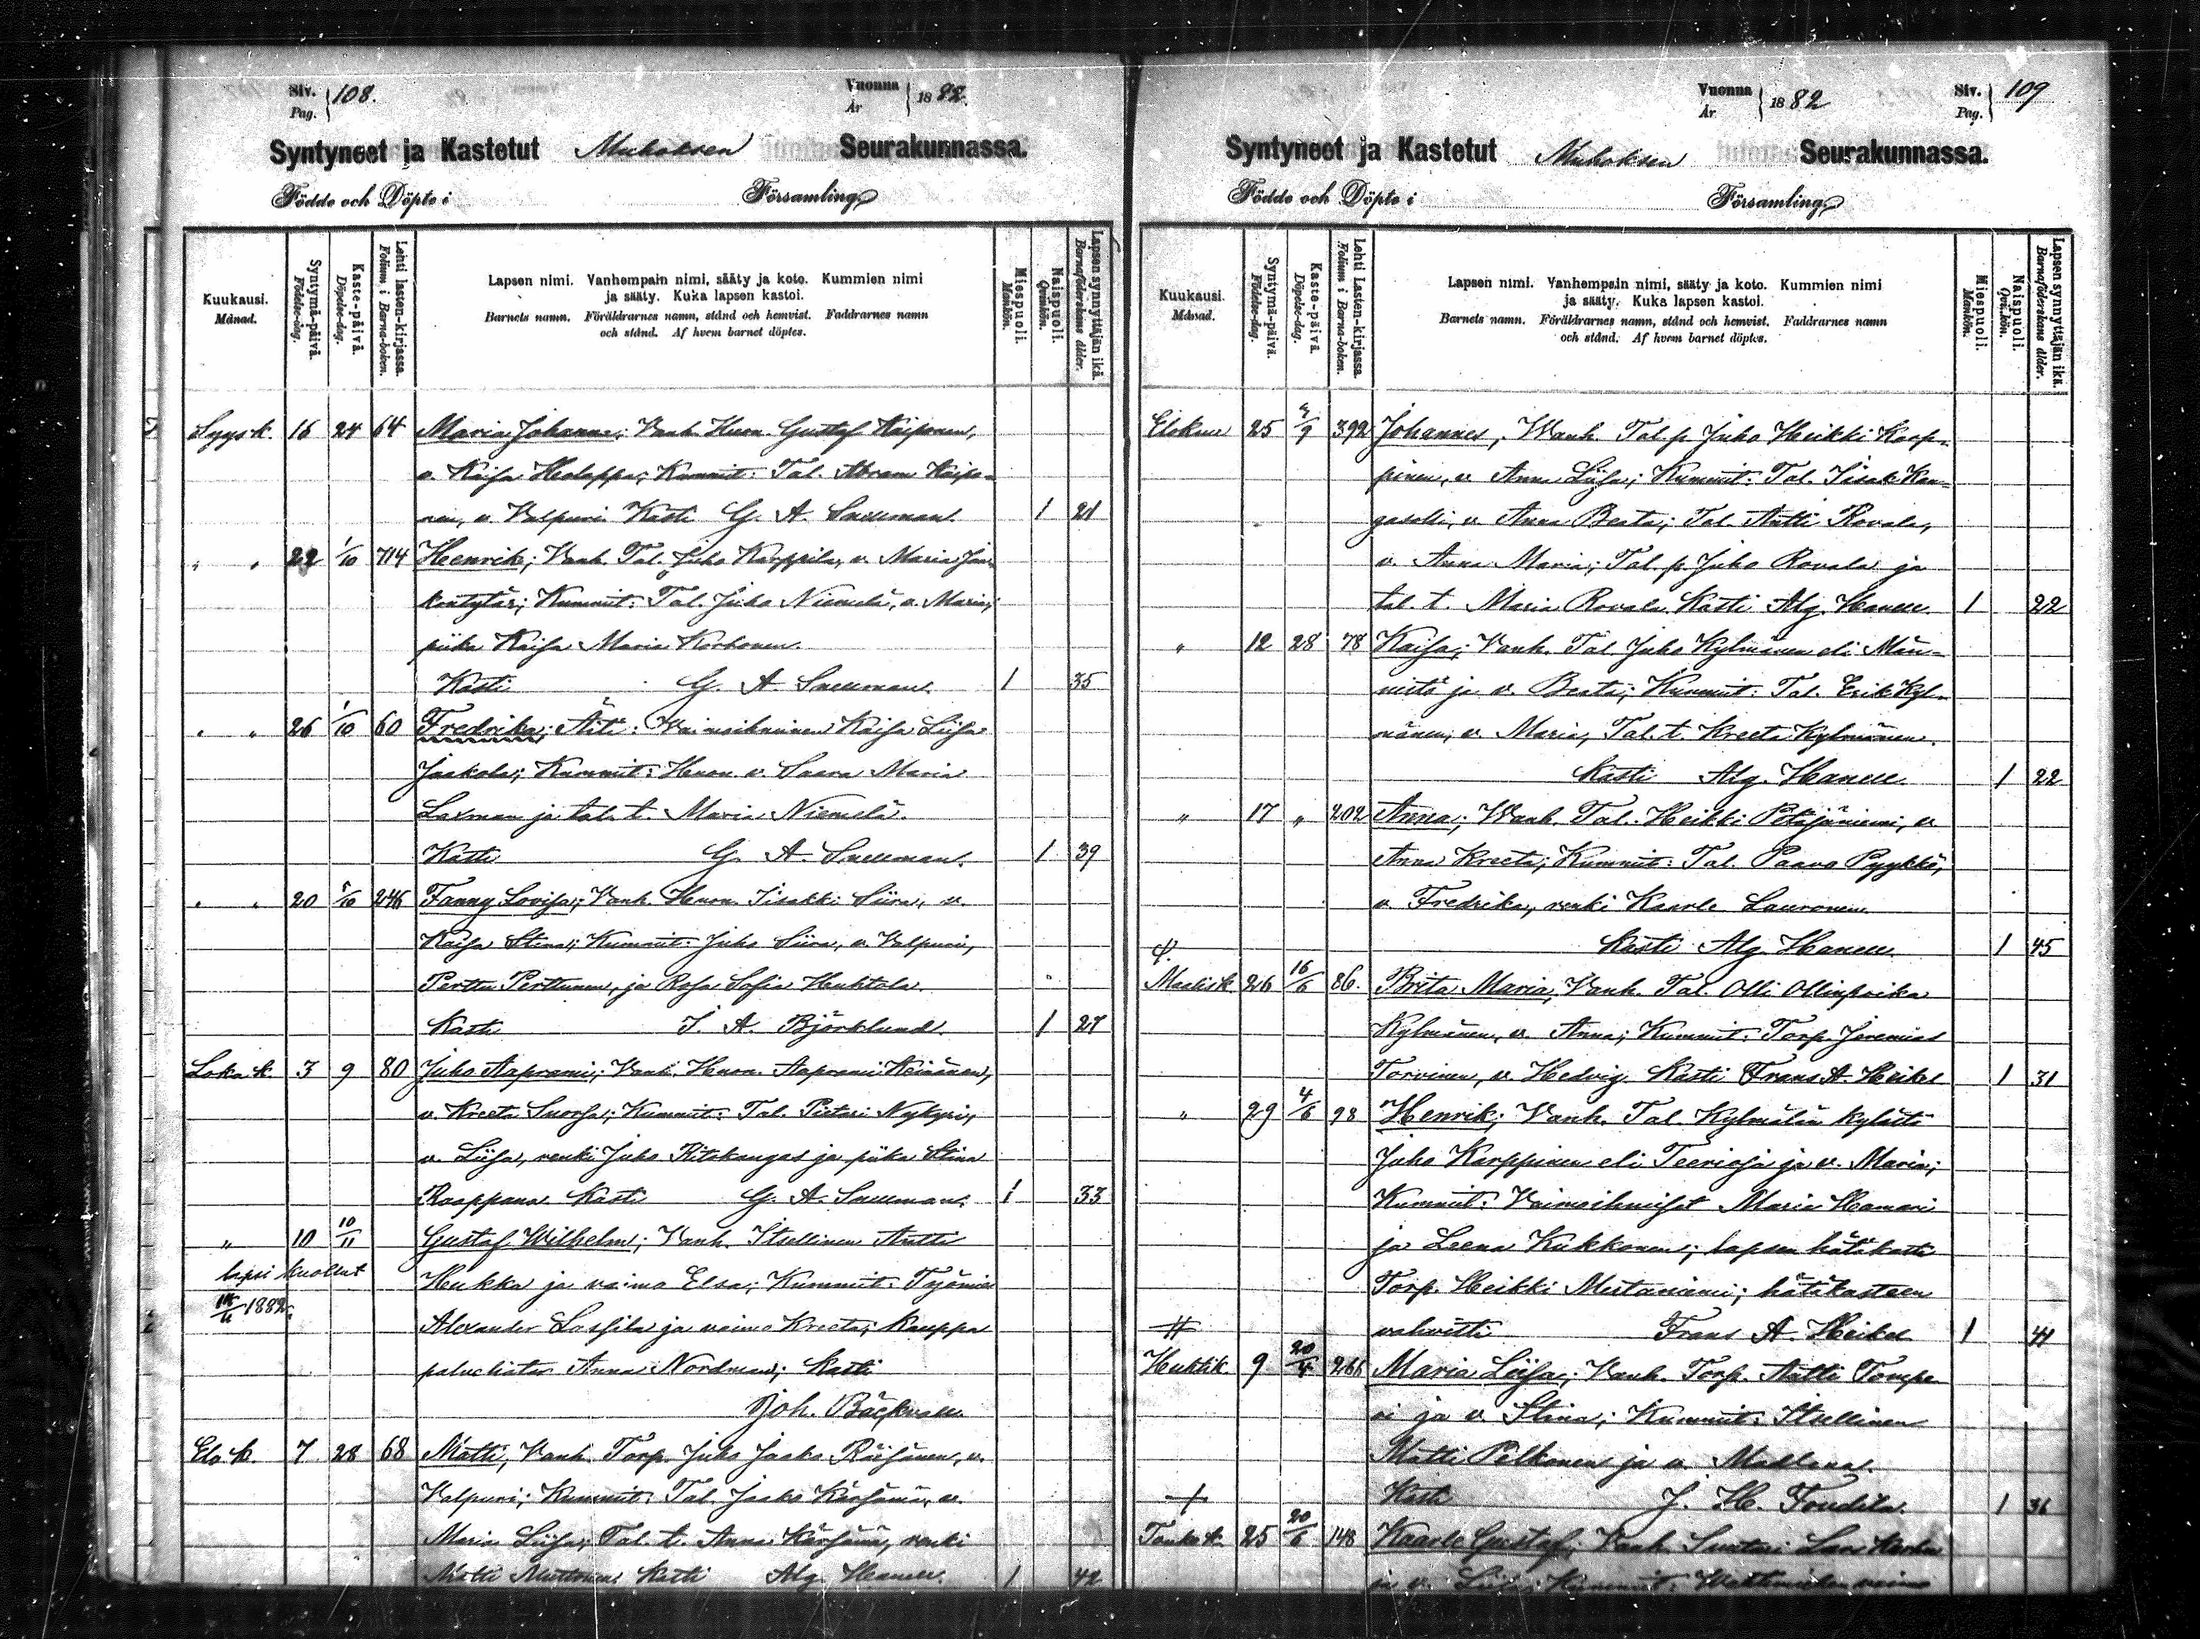 Siv. Pag. 108.
Vuonna År 1882.
Syntyneet ja Kastetut Muhoksen Seurakunnassa.
Födde och Döpte i Församling
Kuukausi. Månad.
Syntymä-päivä. Födelse-dag.
Kaste-päivä. Döpelse-dag.
Lehti lasten-kirjassa. Folium i Barna-boken.
Lapsen nimi. Vanhempain nimi, sääty ja koto. Kummien nimi
ja sääty. Kuka lapsen kastoi.
Barnets namn. Föräldrarnes namn, stånd och hemvist. Faddrarnes namn
och stånd. Af hvem barnet döptes.
Miespuoli. Mankön.
Naispuoli. Qvinkön.
Lapsen synnyttäjän ikä. Barnaföderskans ålder.
Syysk. 16 24 64 Maria Johanna; Vanh. Huon. Gustaf Käiponen,
v. Kaisa Holappa; Kummit: Tal. Abram Käipo-
nen, v. Valpuri Kasti G. A. Snellman. 1 21
" " 22 1/10 714 Henrik; Vanh. Tal. Juho Karppila, v. Maria
Kummit: Tal. Juho Niemelä, v. Maria,
piika Kaisa Maria Korhonen.
Kasti G. A. Snellman. 1 35
" " 26 1/10 60 Fredrika; Äiti: Vaimoihminen Kaisa Liisa
Jaakola; Kummit: Huon. v. Saara Maria
Laxman ja tal. t. Maria Niemelä.
Kasti G. A. Snellman. 1 39
" " 20 1/10 246 Fanny Lovisa; Vanh. Huon. Iisakki Siira, v.
Kaisa Stina; Kummit: Juho Siira, v. Valpuri,
Perttu Perttunen, ja Rosa Sofia Huhtala.
Kasti J. A. Björklund. 1 27
Lokak. 3 9 80 Juho Aaprami; Vanh. Huon. Aaprami Heinänen,
v. Kreeta Suorsa; Kummit: Tal. Pietari Nykyri,
v. Liisa, renki Juho Ritokangas ja piika Stina
Raappana Kasti G. A. Snellman. 1 33
" 10 10/11 Gustaf Wilhelm; Vanh. Itsellinen Antti
lapsi kuollut
Hukka ja vaimo Elsa; Kummit: Työmies
1882.
Alexander Lassila ja vaimo Kreeta; kauppa
Anna Nordman; Kasti
Joh. Bäckvall.
Elo k. 7 28 68 Matti, Vanh. Torp. Juho Jaako Räisänen, v.
Valpuri; Kummit: Tal. Jaako Kärsämä, v.
Maria Liisa; Tal. t. Anna Kärsämä, renki
Matti Muttonen. Kasti Alg. Hanell. 1 42
Vuonna År 1882
Siv. Pag. 109
Syntyneet ja Kastetut Muhoksen Seurakunnassa.
Födde och Döpte i Församling
Kuukausi. Månad.
Syntymä-päivä. Födelse-dag.
Kaste-päivä. Döpelse-dag.
Lehti Lasten-kirjassa. Folium i Barna-boken.
Lapsen nimi. Vanhempain nimi, sääty ja koto. Kummien nimi
ja sääty. Kuka lapsen kastoi.
Barnets namn. Föräldrarnes namn, stånd och hemvist. Faddrarnes namn
och stånd. Af hvem barnet döptes.
Miespuoli. Mankön.
Naispuoli. Qvinkön.
Lapsen synnyttäjän ikä. Barnaföderskans ålder.
Elokuu 25 392 Johannes, Wanh. Tal. p. Juho Heikki Karp-
pinen, v. Anna Liisa; Kummit: Tal. Iisak Kan-
v. Anna Beata; Tal. Antti Rovala,
v. Anna Maria; Tal. p. Juho Rovala ja
tal. t. Maria Rovala. Kasti Alg. Hanell. 1 22
" 12 28 78 Kaisa; Vanh. Tal. Juho Kylmänen eli Män-
nistö ja v. Beata; Kummit: Tal. Erik Kyl-
mänen, v. Maria, Tal. t. Kreeta Kylmänen.
Kasti Alg. Hanell. 1 22
" 17 " 202 Anna; Wanh. Tal. Heikki Petäjäniemi, v.
Anna Kreeta; Kummit: Tal. Paavo Pyykkö,
v. Fredrika, renki Kaarle Lauronen.
Kasti Alg. Hanell. 1 45
Maalisk. 26 16/6 86. Brita Maria, Vanh. Tal. Olli Ollinpoika
Kylmänen, v. Anna; Kummit: Torp. Jeremias
Torvinen, v. Hedvig. Kasti Frans A. Heikel 1 31
" 29 4/6 98 Henrik; Vanh. Tal. Kylmälän kylästä
Juho Karppinen eli Teerioja ja v. Maria;
Kummit: Vaimoihmiset Maria Hamari
ja Leena Kukkonen; lapsen hätäkasti
Torp. Heikki Mustaniemi; hätäkasteen
vahvisti Frans A. Heikel 1 41
Huhtik. 9 20/4 266 Maria Liisa; Vanh. Torp. Antti Tompe
ri ja v. Stina; Kummit: Itsellinen
Matti Pelkonen ja v. Matleena.
Kasti J. H. Toudila. 1 36
Toukok. 25 20/6 148 Kaarle Gustaf; Vanh. Suutari Lars
ja v. Liisa; Kummit: vaimo